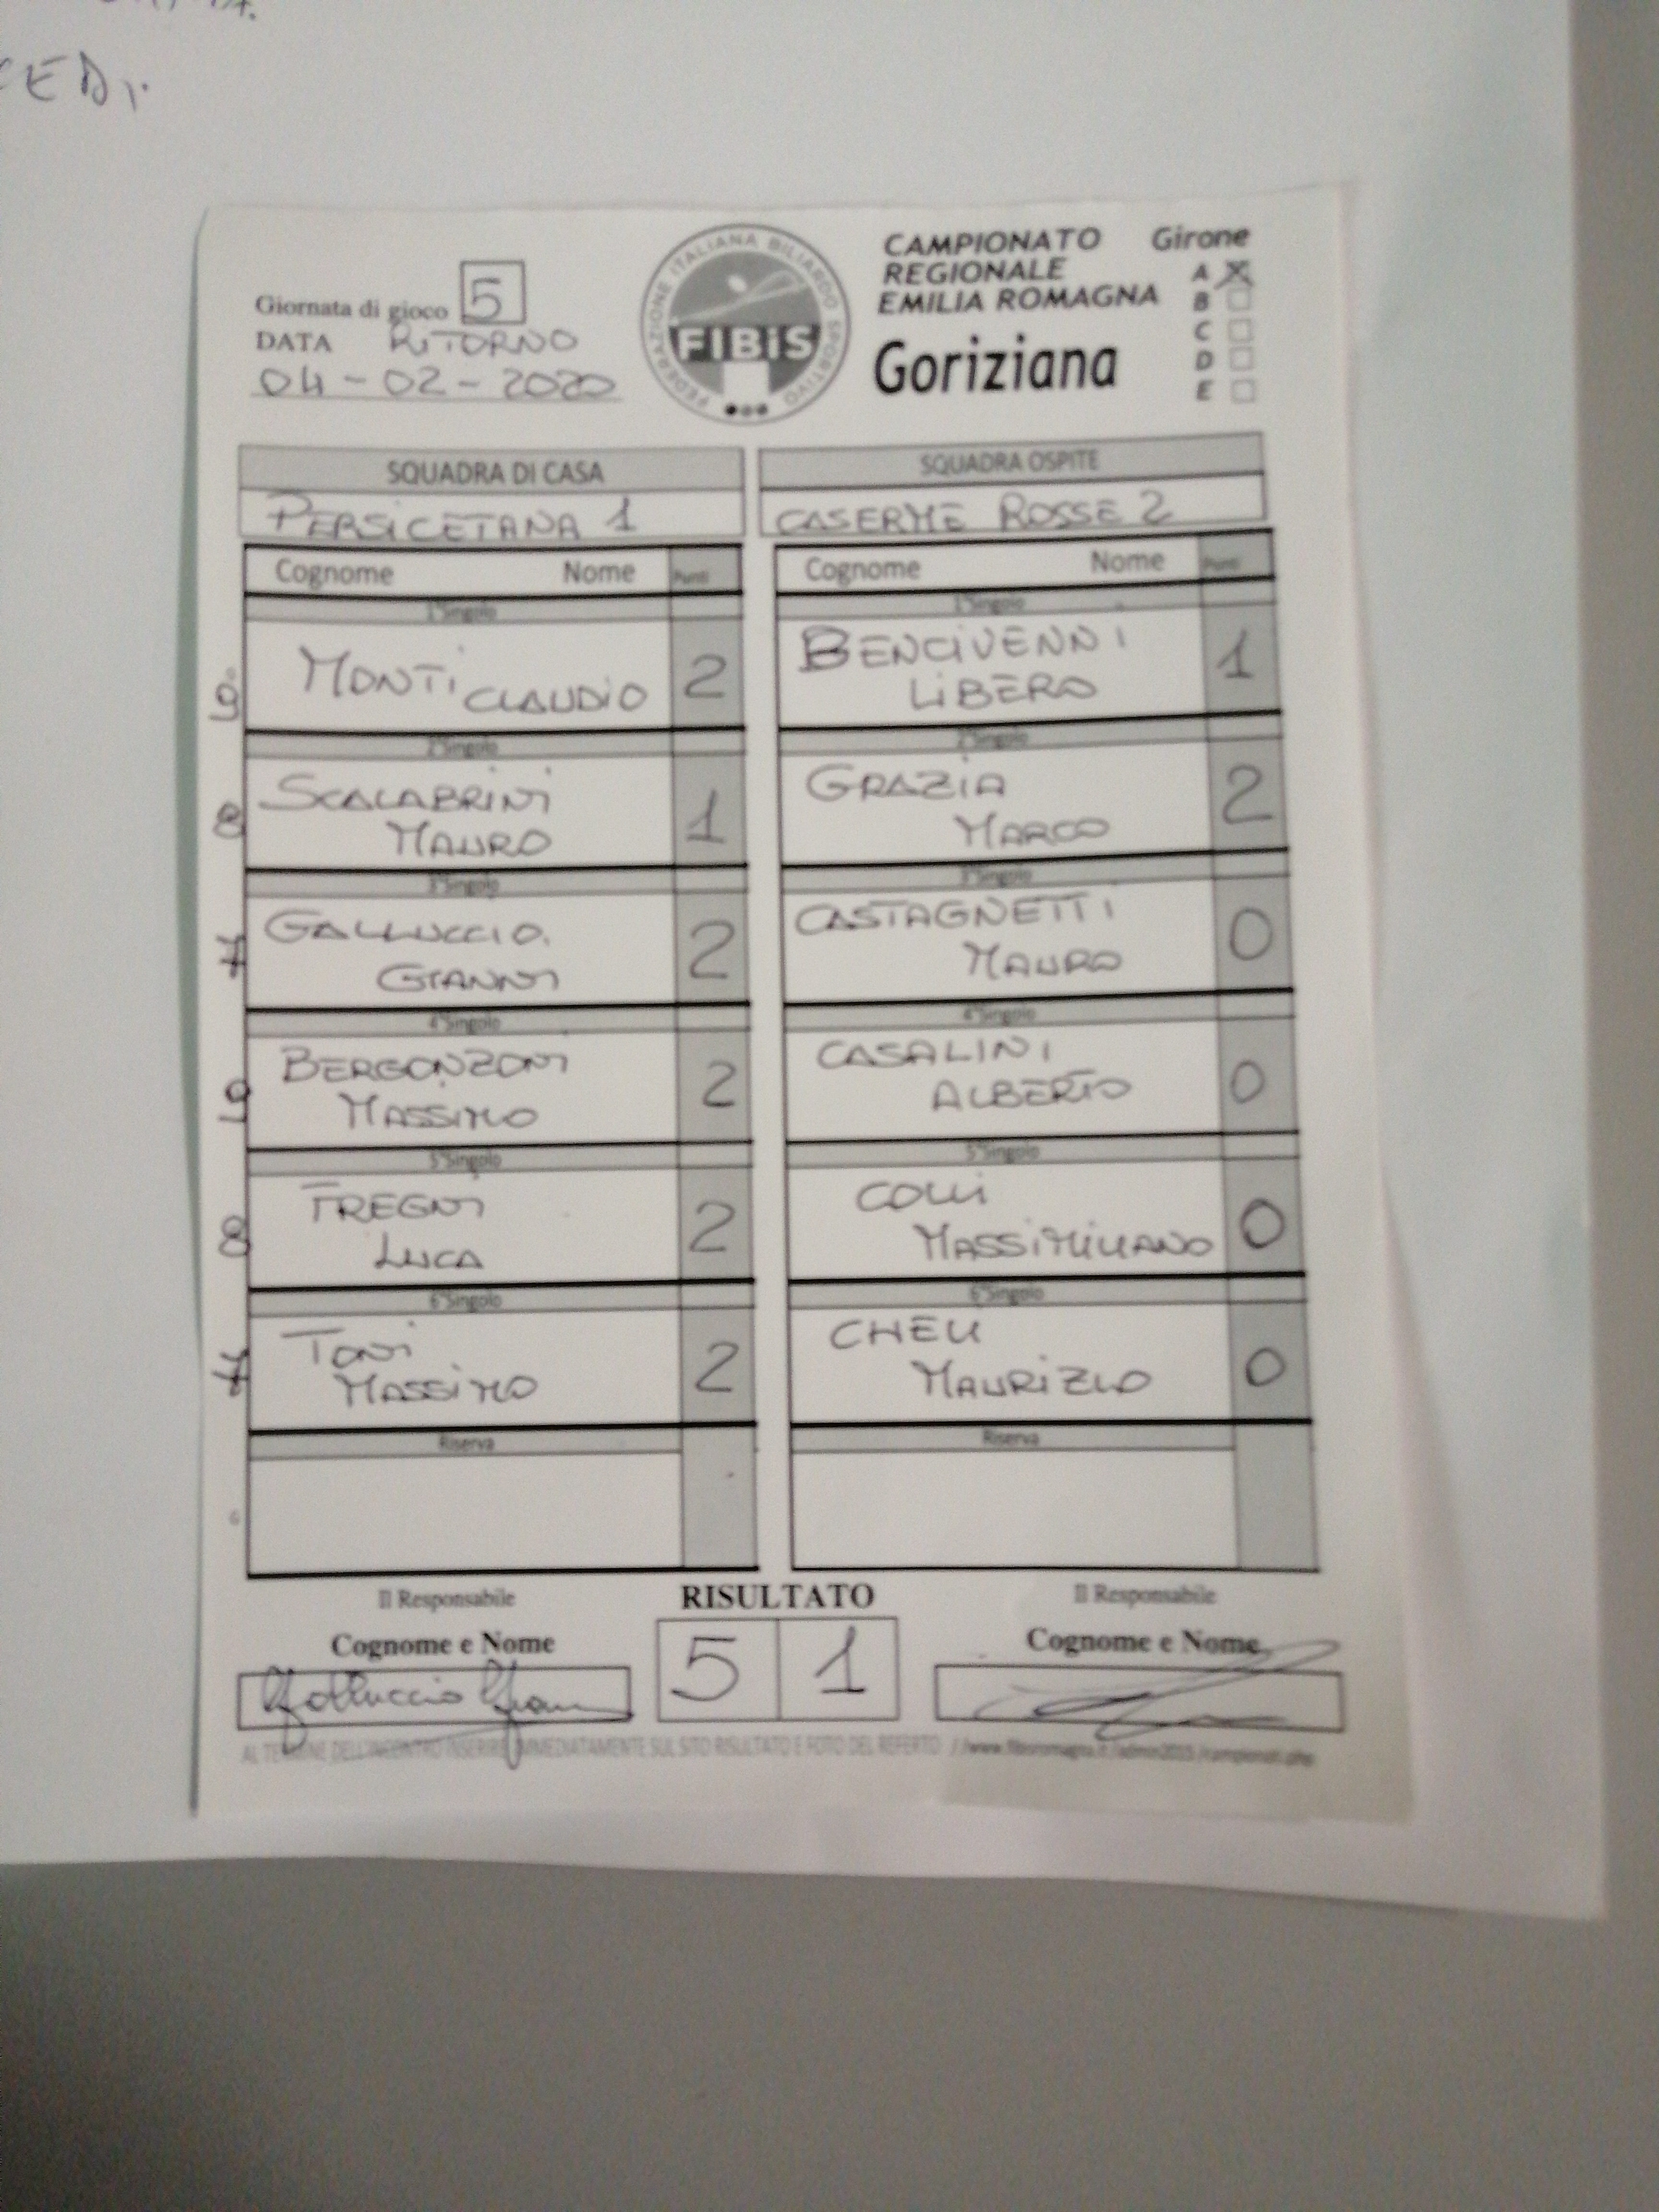 CEDI.
CAMPIONATO Girone
REGIONALE
EMILIA ROMAGNA
Goriziana
A X
B
C
D
E
Giornata di gioco 5
DATA RITORNO
04-02-2020
FEDERAZIONE ITALIANA BILIARDO SPORTIVO
FIBiS
SQUADRA DI CASA
PERSICETANA 1
SQUADRA OSPITE
CASERME ROSSE 2
Cognome Nome Punti
Cognome Nome Punti
1°Singolo
9 MONTI CLAUDIO 2
1°Singolo
BENCIVENNI
LIBERO 1
2°Singolo
8 SCALABRINI
MAURO 1
2°Singolo
GRAZIA
MARCO 2
3°Singolo
7 GALLUCCIO
GIANNI 2
3°Singolo
CASTAGNETTI
MAURO 0
4°Singolo
9 BERGONZONI
MASSIMO 2
4°Singolo
CASALINI
ALBERTO 0
5°Singolo
8 FREGNI
LUCA 2
5°Singolo
COLLI
MASSIMILIANO 0
6°Singolo
7 TONI
MASSIMO 2
6°Singolo
CHELI
MAURIZIO 0
Riserva
Riserva
Il Responsabile
Cognome e Nome
Galluccio Gian
RISULTATO
5 1
Il Responsabile
Cognome e Nome
AL TERMINE DELL'INCONTRO INSERIRE IMMEDIATAMENTE SUL SITO RISULTATO E FOTO DEL REFERTO